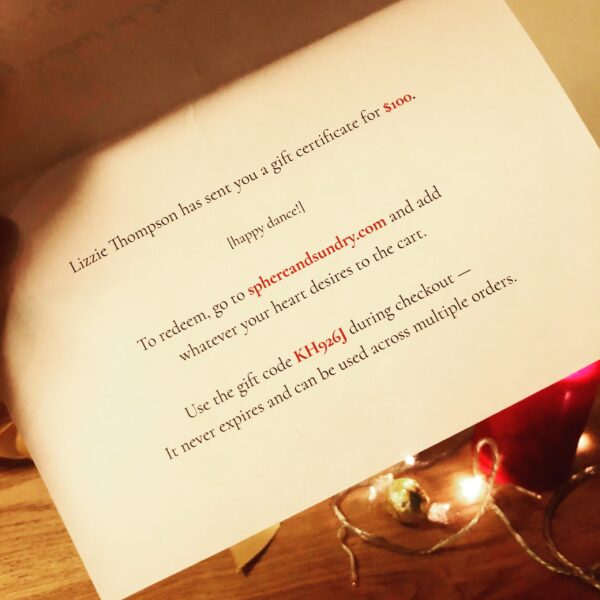 Lizzie Thompson has sent you a gift certificate for $100.
[happy dance!]
To redeem, go to sphereandsundry.com and add
whatever your heart desires to the cart.
Use the gift code KH926J during checkout —
It never expires and can be used across multiple orders.